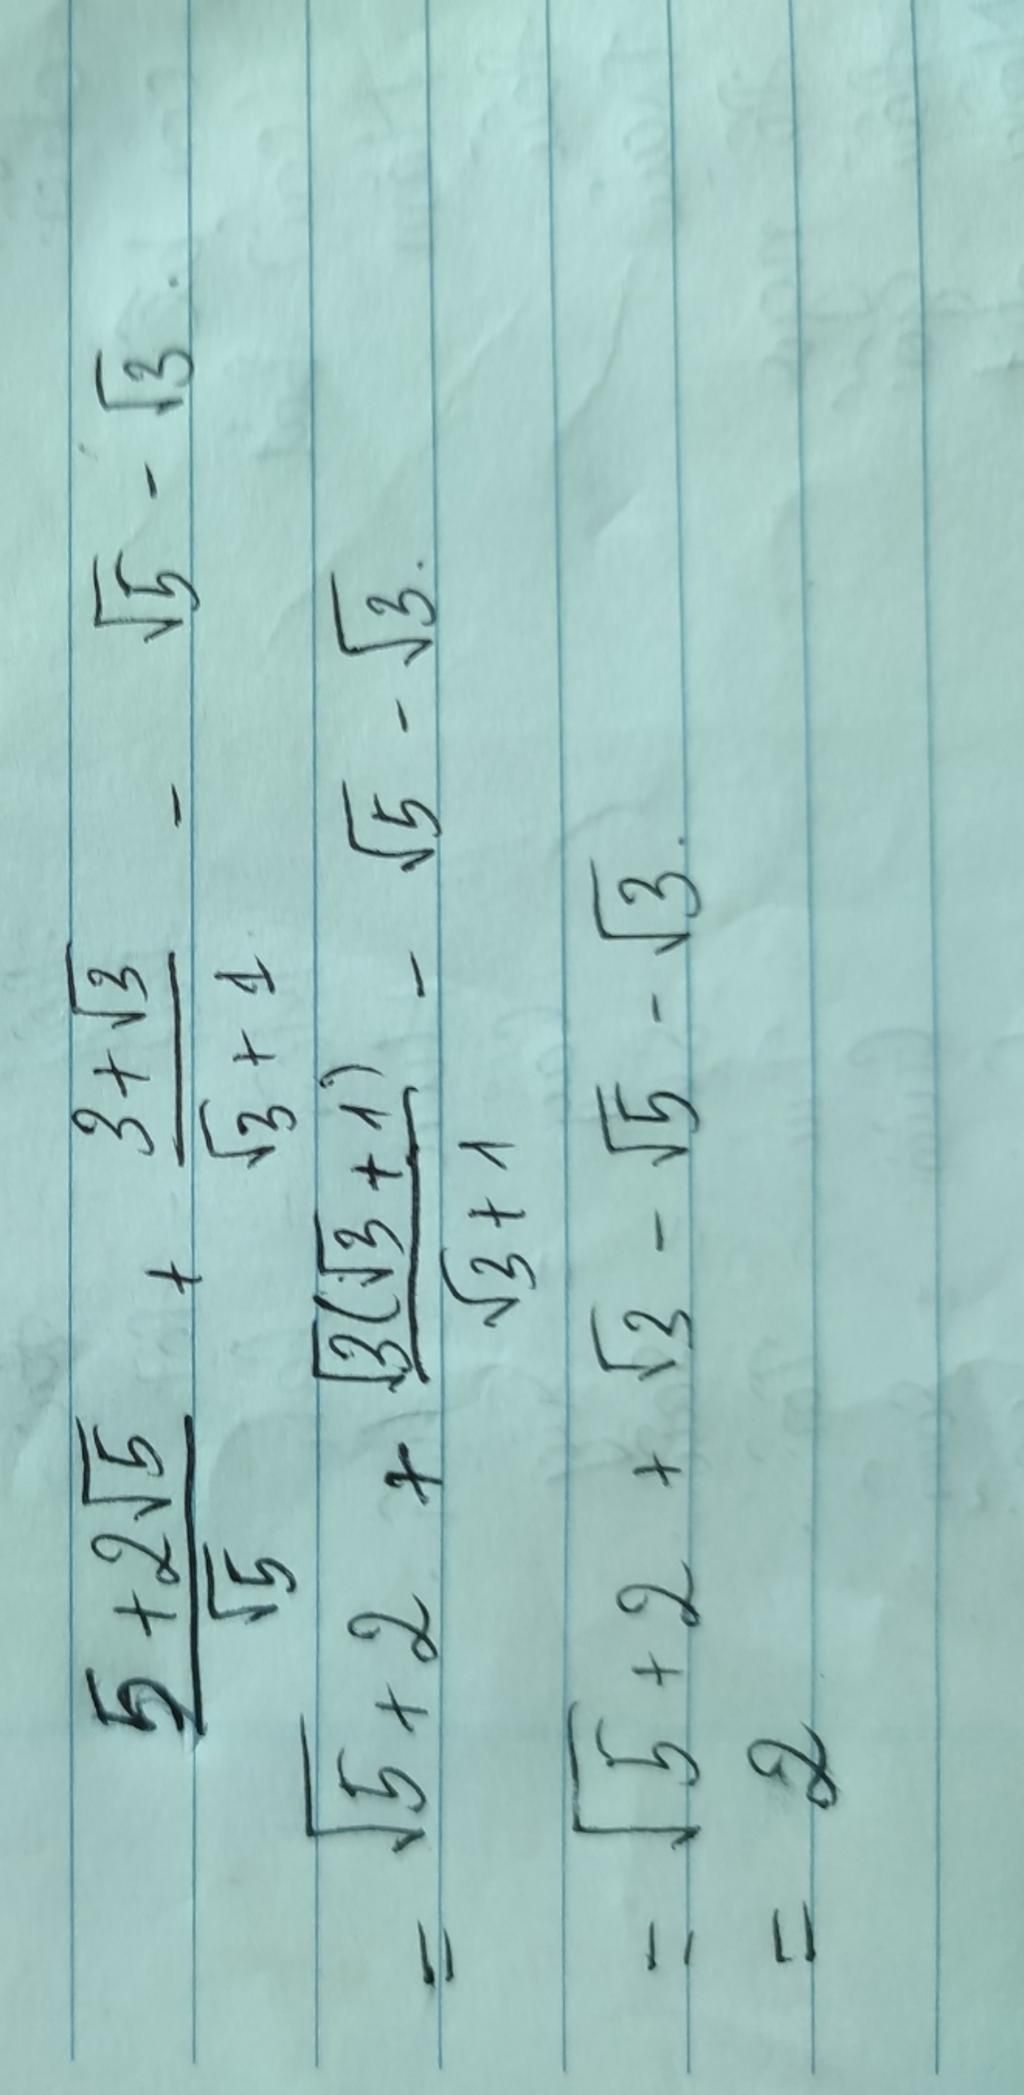 (5 + 2√5)/√5 + (3 + √3)/(√3 + 1) - √5 - √3.
= √5 + 2 + √3(√3 + 1)/(√3 + 1) - √5 - √3.
= √5 + 2 + √3 - √5 - √3.
= 2